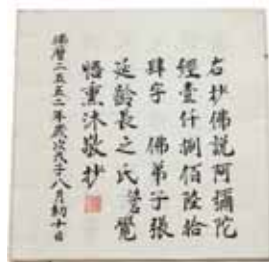 右抄佛説阿彌陀
經壹仟捌佰陸拾
肆字　佛弟子張
延齡長之氏慧覺
悟熏沐敬抄
佛曆二五五二年歲次戊子八月初十日